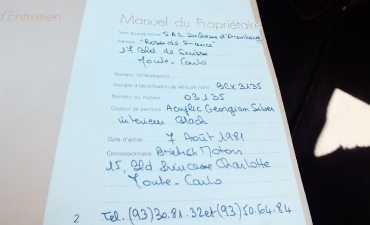 d'Entretien
Manuel du Propriétaire
Nom du propriétaire S.A.S. Duchesse d'
Adresse "Roses de France"
17 Bld de Suisse
Monte-Carlo
Numéro
Numéro d'identification du véhicule (VIN) BCX 3135
Numéro du moteur 03135
Couleur de peinture Acrylic Georgian Silver
intérieur Black
Date d'achat 7 Août 1981
Concessionnaire British Motors
15, Bld Princesse Charlotte
Monte-Carlo
2 Tel. (93)30.81.32 et (93)50.64.84.